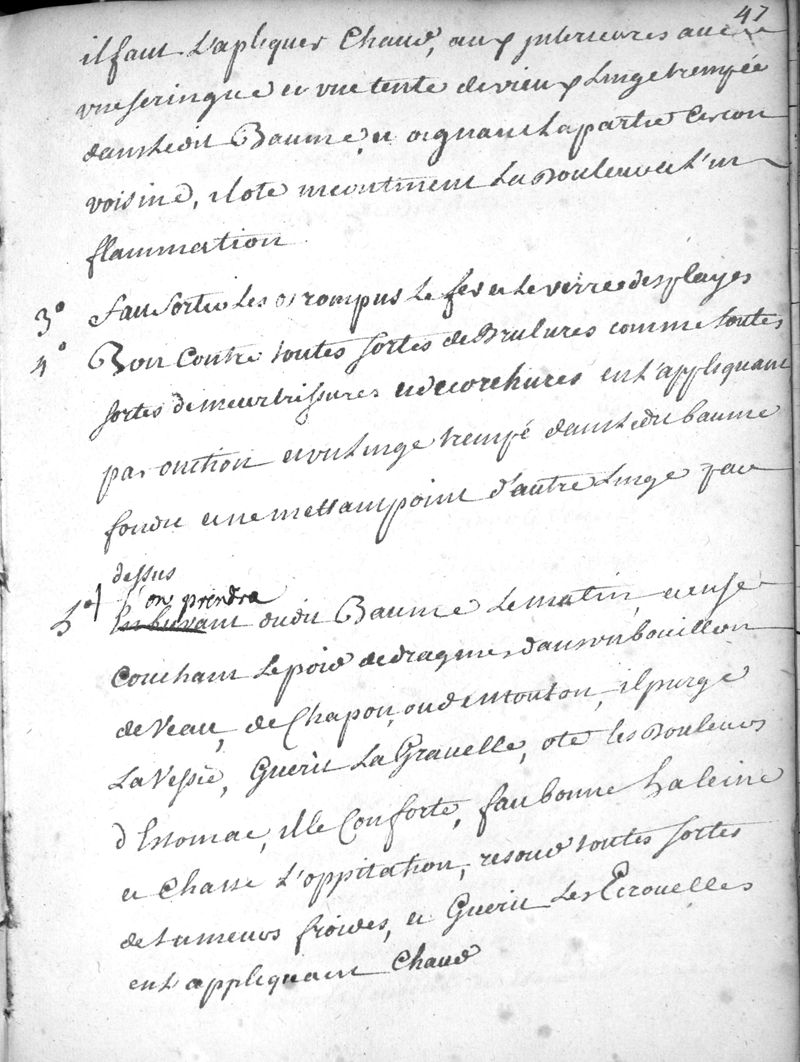 47
il faut L'apliquer Chaud, aux jnterieures avec
vne seringue et vne tente de vieux Linge trempée
dans Ledit Baume, et oignant La partie Circon
voisine, il ote incontinent La Douleur et L'in
flammation
3° fait sortir Les os rompus Le fer et Le verre des playes
4° Bon Contre toutes sortes de Brulures comme toutes
sortes de meurtrissures et decorchures en L'appliquant
par onction et vn Linge trempé dans Ledit baume
fondu et ne mettant point d'autre Linge par
dessus
on prendra
5° En buvant dudit Baume Le matin, et en se
Couchant Le poid de dragmes dans vn bouillon
de Veau, de Chapon, ou de mouton, il purge
La Vessie, Guerit La Gravelle, ote les Douleurs
d'Estomac, il le Conforte, fait bonne haleine
et Chasse L'oppilation, resoud toutes sortes
de tumeurs froides, et Guerit Les Ecrouelles
en L'appliquant Chaud